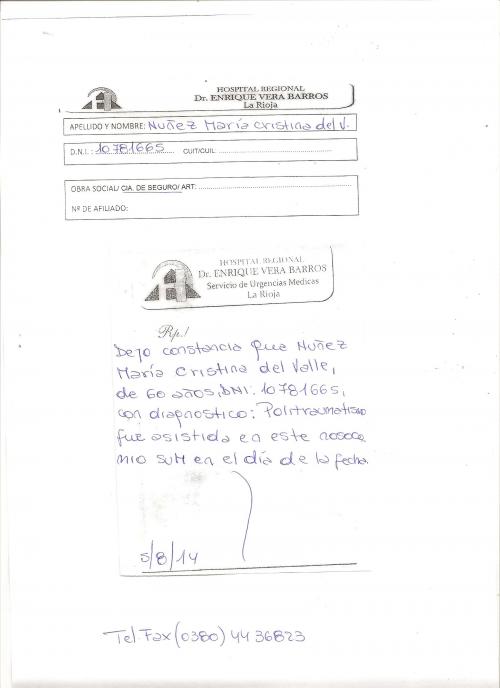 HOSPITAL REGIONAL
Dr. ENRIQUE VERA BARROS
La Rioja
APELLIDO Y NOMBRE: Nuñez María Cristina del V.
D.N.I.: 10781665 CUIT/CUIL:
OBRA SOCIAL/ CIA. DE SEGURO/ ART:
Nº DE AFILIADO:
HOSPITAL REGIONAL
Dr. ENRIQUE VERA BARROS
Servicio de Urgencias Medicas
La Rioja
Rp./
Dejo constancia que Nuñez
María Cristina del Valle,
de 60 años, DNI: 10781665,
con diagnostico: Politraumatismo
fue asistida en este nosoco
mio SUM en el día de la fecha.
5/8/14
Tel Fax (0380) 44 36823